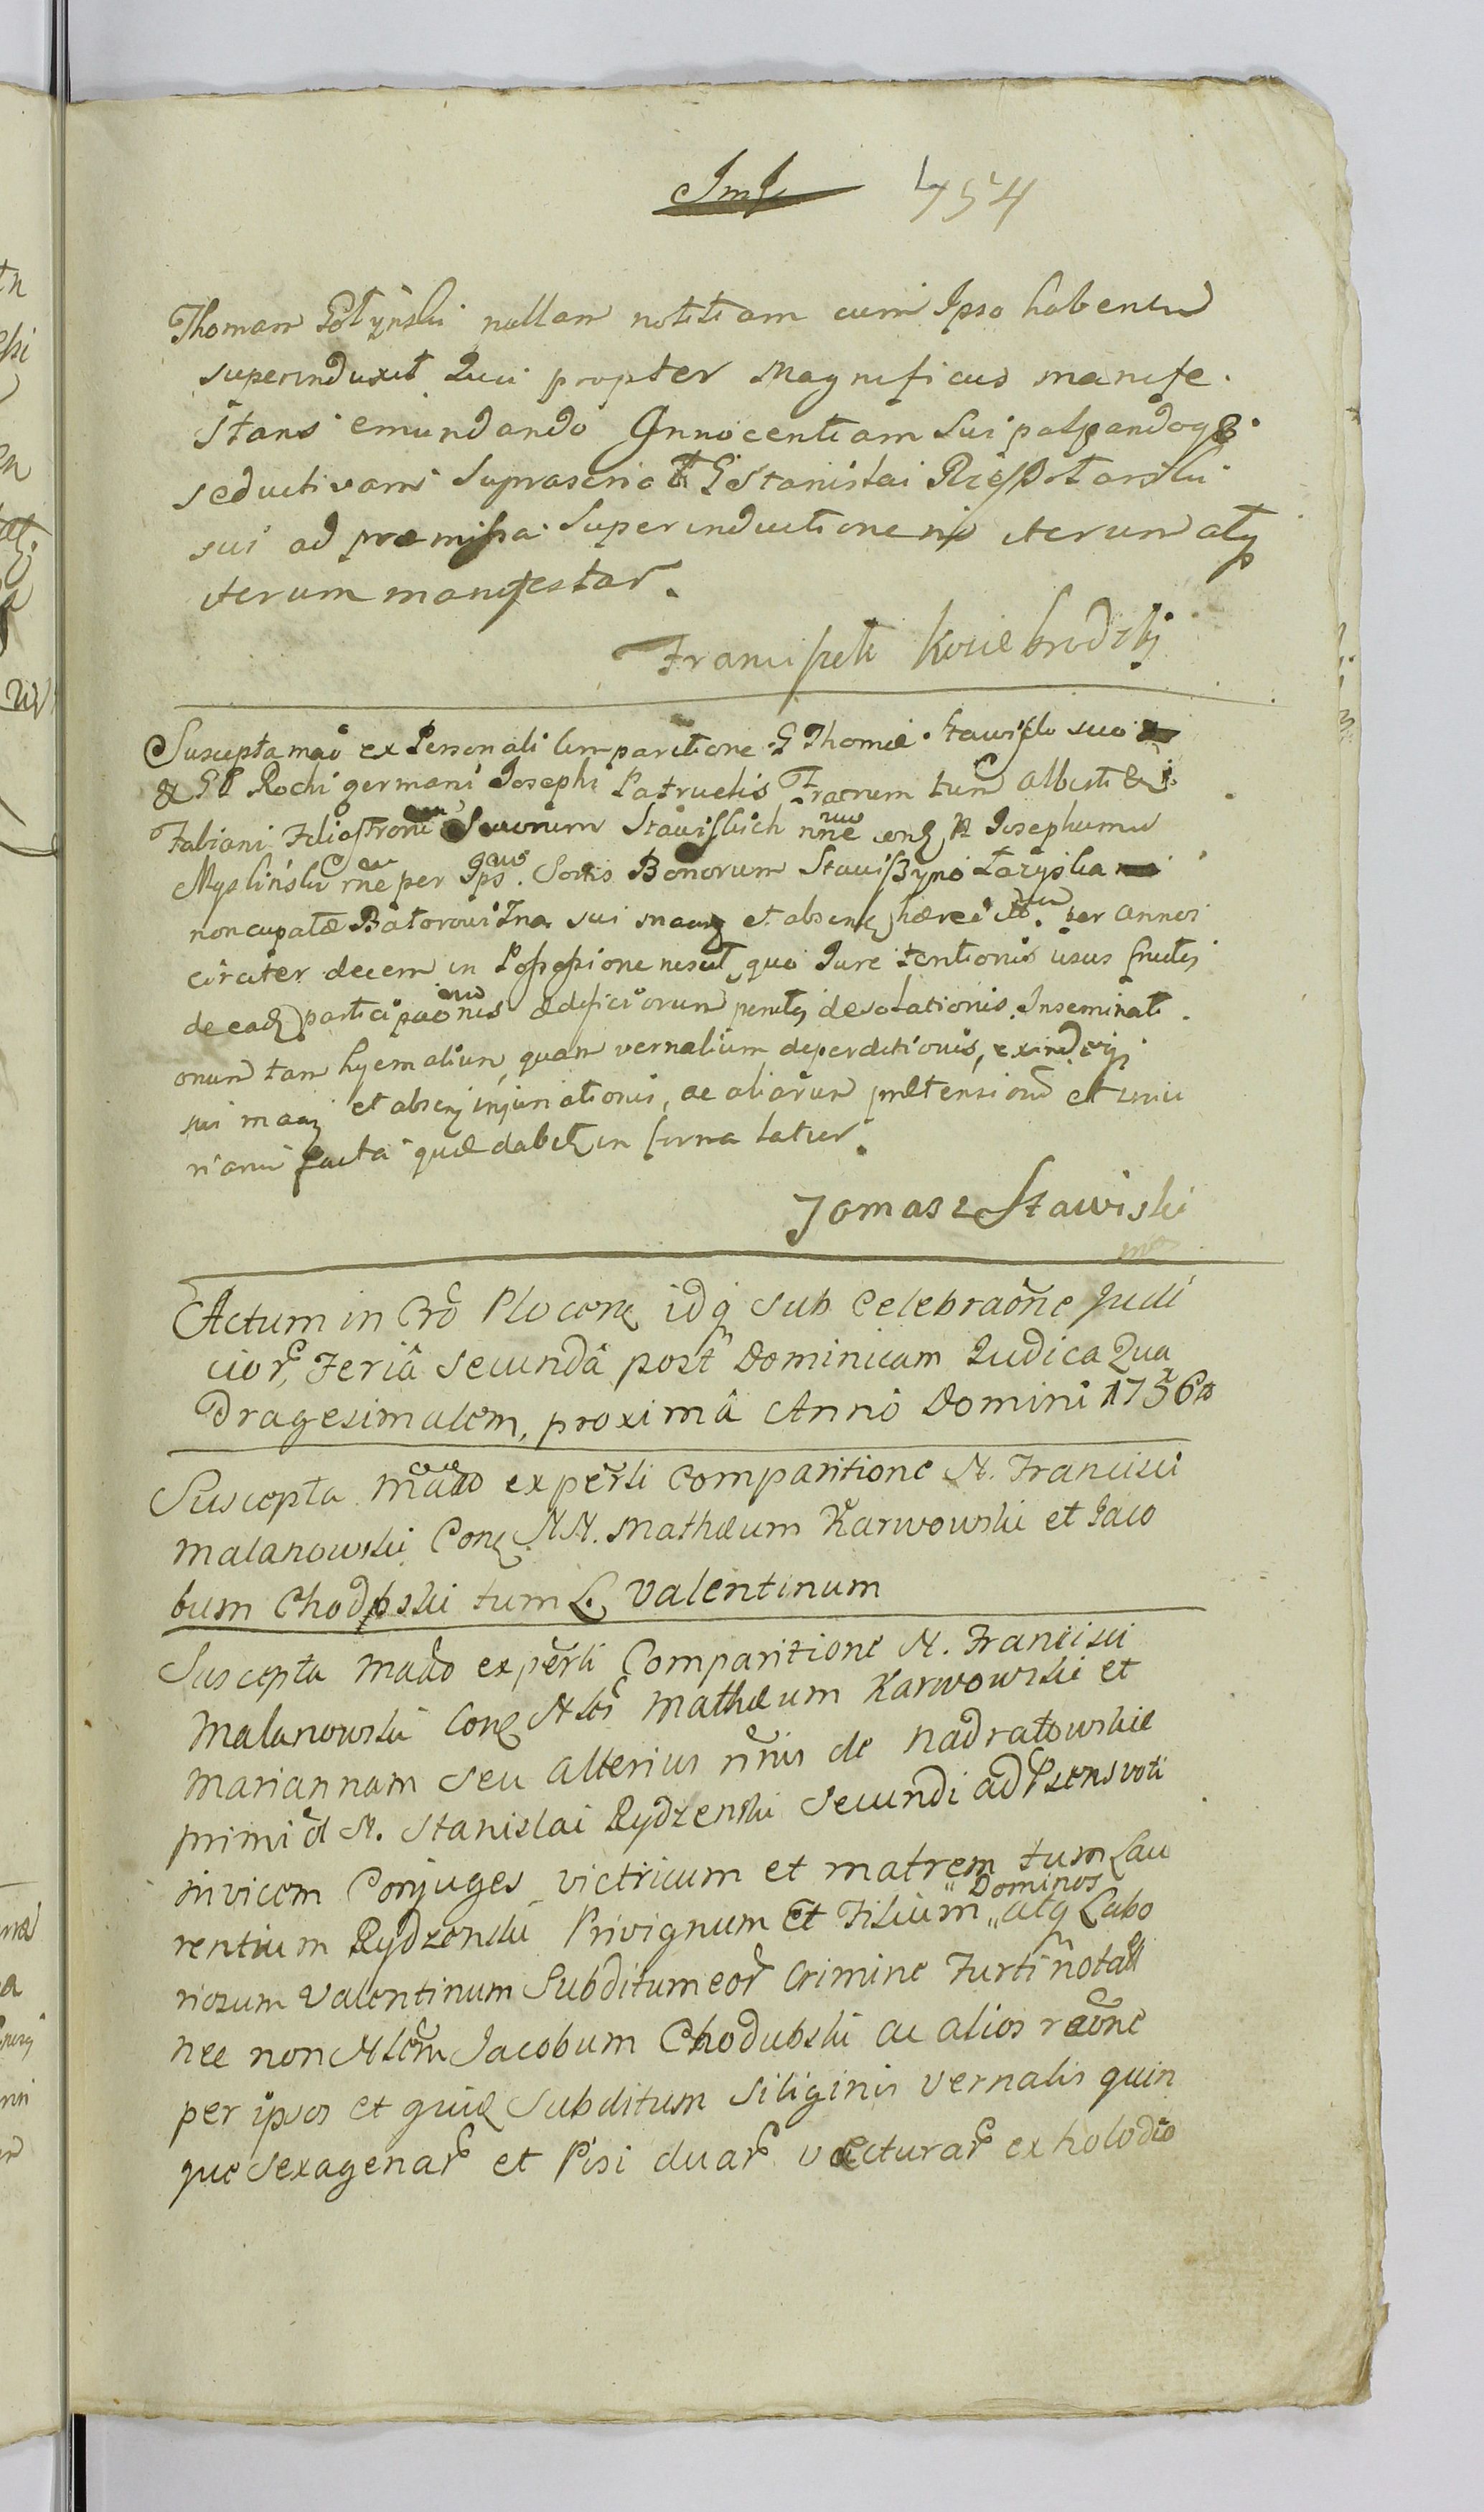 454
Thomam nullam notitiam cum Ipso habentem
superinduxit Qua propter Magnificus manife.
stans emundando Innocentiam Sui palpandoq3
seductivam Suprascriptt G Stanislai
sui ad præmissa Superinductionem iterum atq
iterum manifestat.
Franciszek Kosiebrodzki
Suscepta maõ ex Personali Comparitione G Thomæ Stawisklo suo
& GG Rochi germani Josephi Patruelis Fratrum tum Alberti &
Fabiani Stawiskich nne conq N Josephum
Mysliński rne per Ips. Sortis Bonorum
noncupatæ sui maaq et absenq per annos
circiter decem in Possessione nescit quo Jure tentionis usus fructq
de eadq participaõnis ædificiorum penitq desolationis Inseminati
onum tam hyemalium, quam vernalium deperditionis, exindeq
sui maaq et absenq injuriationis, ac aliarum prætensionũ et iniu
riarum facta quæ dabitq in forma latior.
Tomasz Stawiski
Actum in Crõ Plocenq idq sub Celebraõne Judi
cior, Feriâ secundâ post Dominicam Judica Qua
dragesimalem, proximâ Anno Domini 1756to
Suscepta mado ex perli Comparitione N. Francisci
Malanowski Conq NN. Mathæum Karwowski et Jaco
bum Chodpski tum L. Valentinum
Suscepta mado ex perli Comparitione N. Francisci
Malanowski Conq Nles Mathæum Karwowski et
Mariannam seu alterius nnis de Nadratowskie
primi ol N. Stanislai Rydzenski secundi ad Psens voti
invicem Conjuges victricum et matrem tum Lau
rentium Rydzenski Privignum et Filium „ Dominos „ atq Labo
riosum Valentinum Subditum eor Crimine Furti notatt
nec non Nlem Jacobum Chodubski ac alios raõne
per ipsos et Subditum Siliginis vernalis quin
que sexagenar et Pisi duar vecturar ex holodio